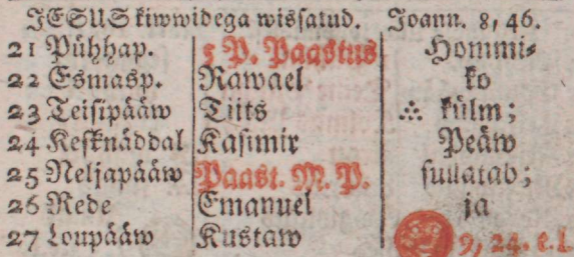 JESUS kiwwidega wissatud. Joann. 8, 46.
21 Pühhap. 5 P. Paastus Hommi-
22 Esmasp. Rawael ko
23 Teisipääw Tiits ∴ külm;
24 Kesknäddal Kasimir Peäw
25 Neljapääw Paast. M. P. sullatab;
26 Rede Emanuel ja
27 Loupääw Kustaw 9, 24. e. l.